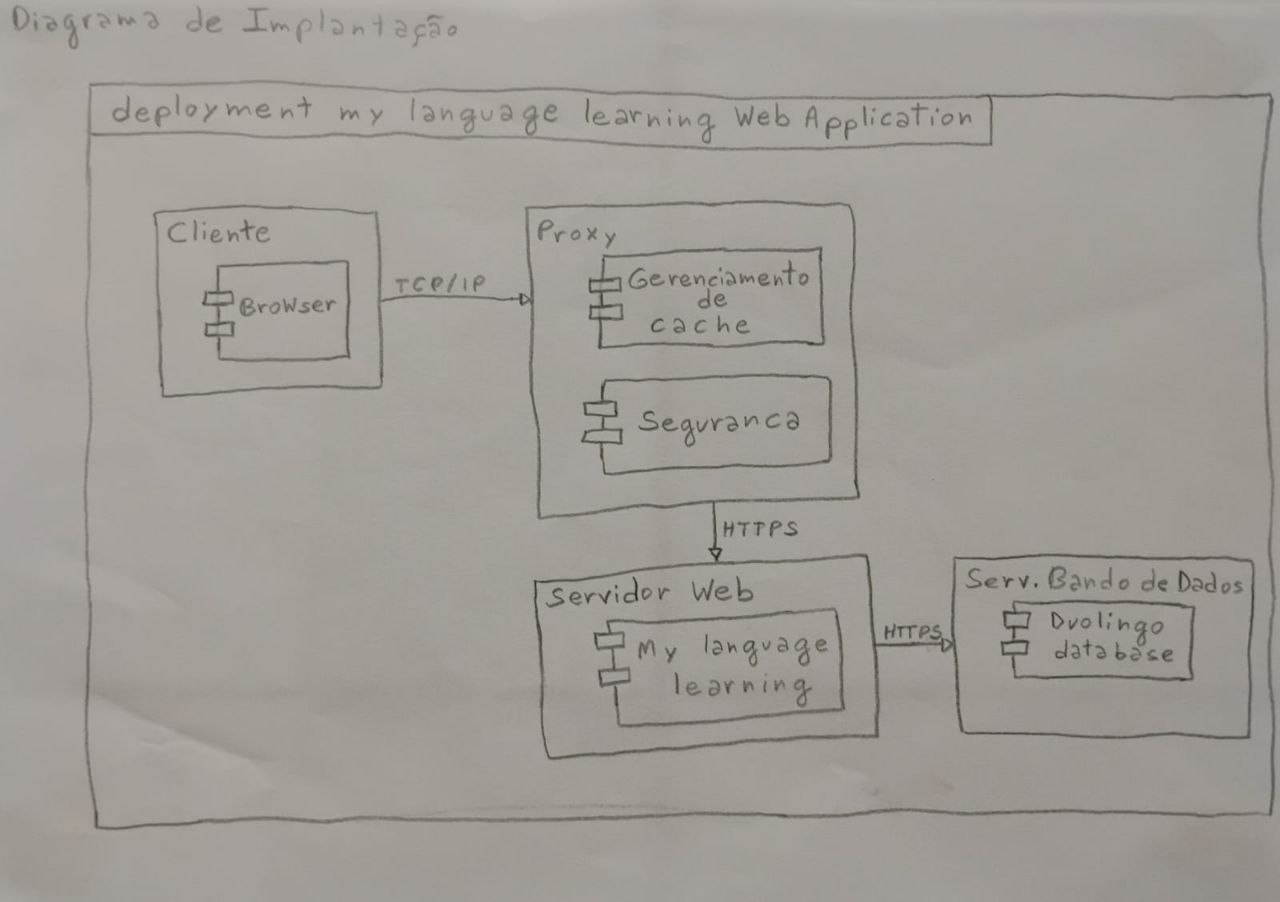 Diagrama de Implantação
deployment my language learning Web Application
Cliente
Browser
TCP/IP
Proxy
Gerenciamento
de
cache
Seguranca
HTTPS
Servidor Web
My language
learning
HTTPS
Serv. Bando de Dados
Duolingo
database